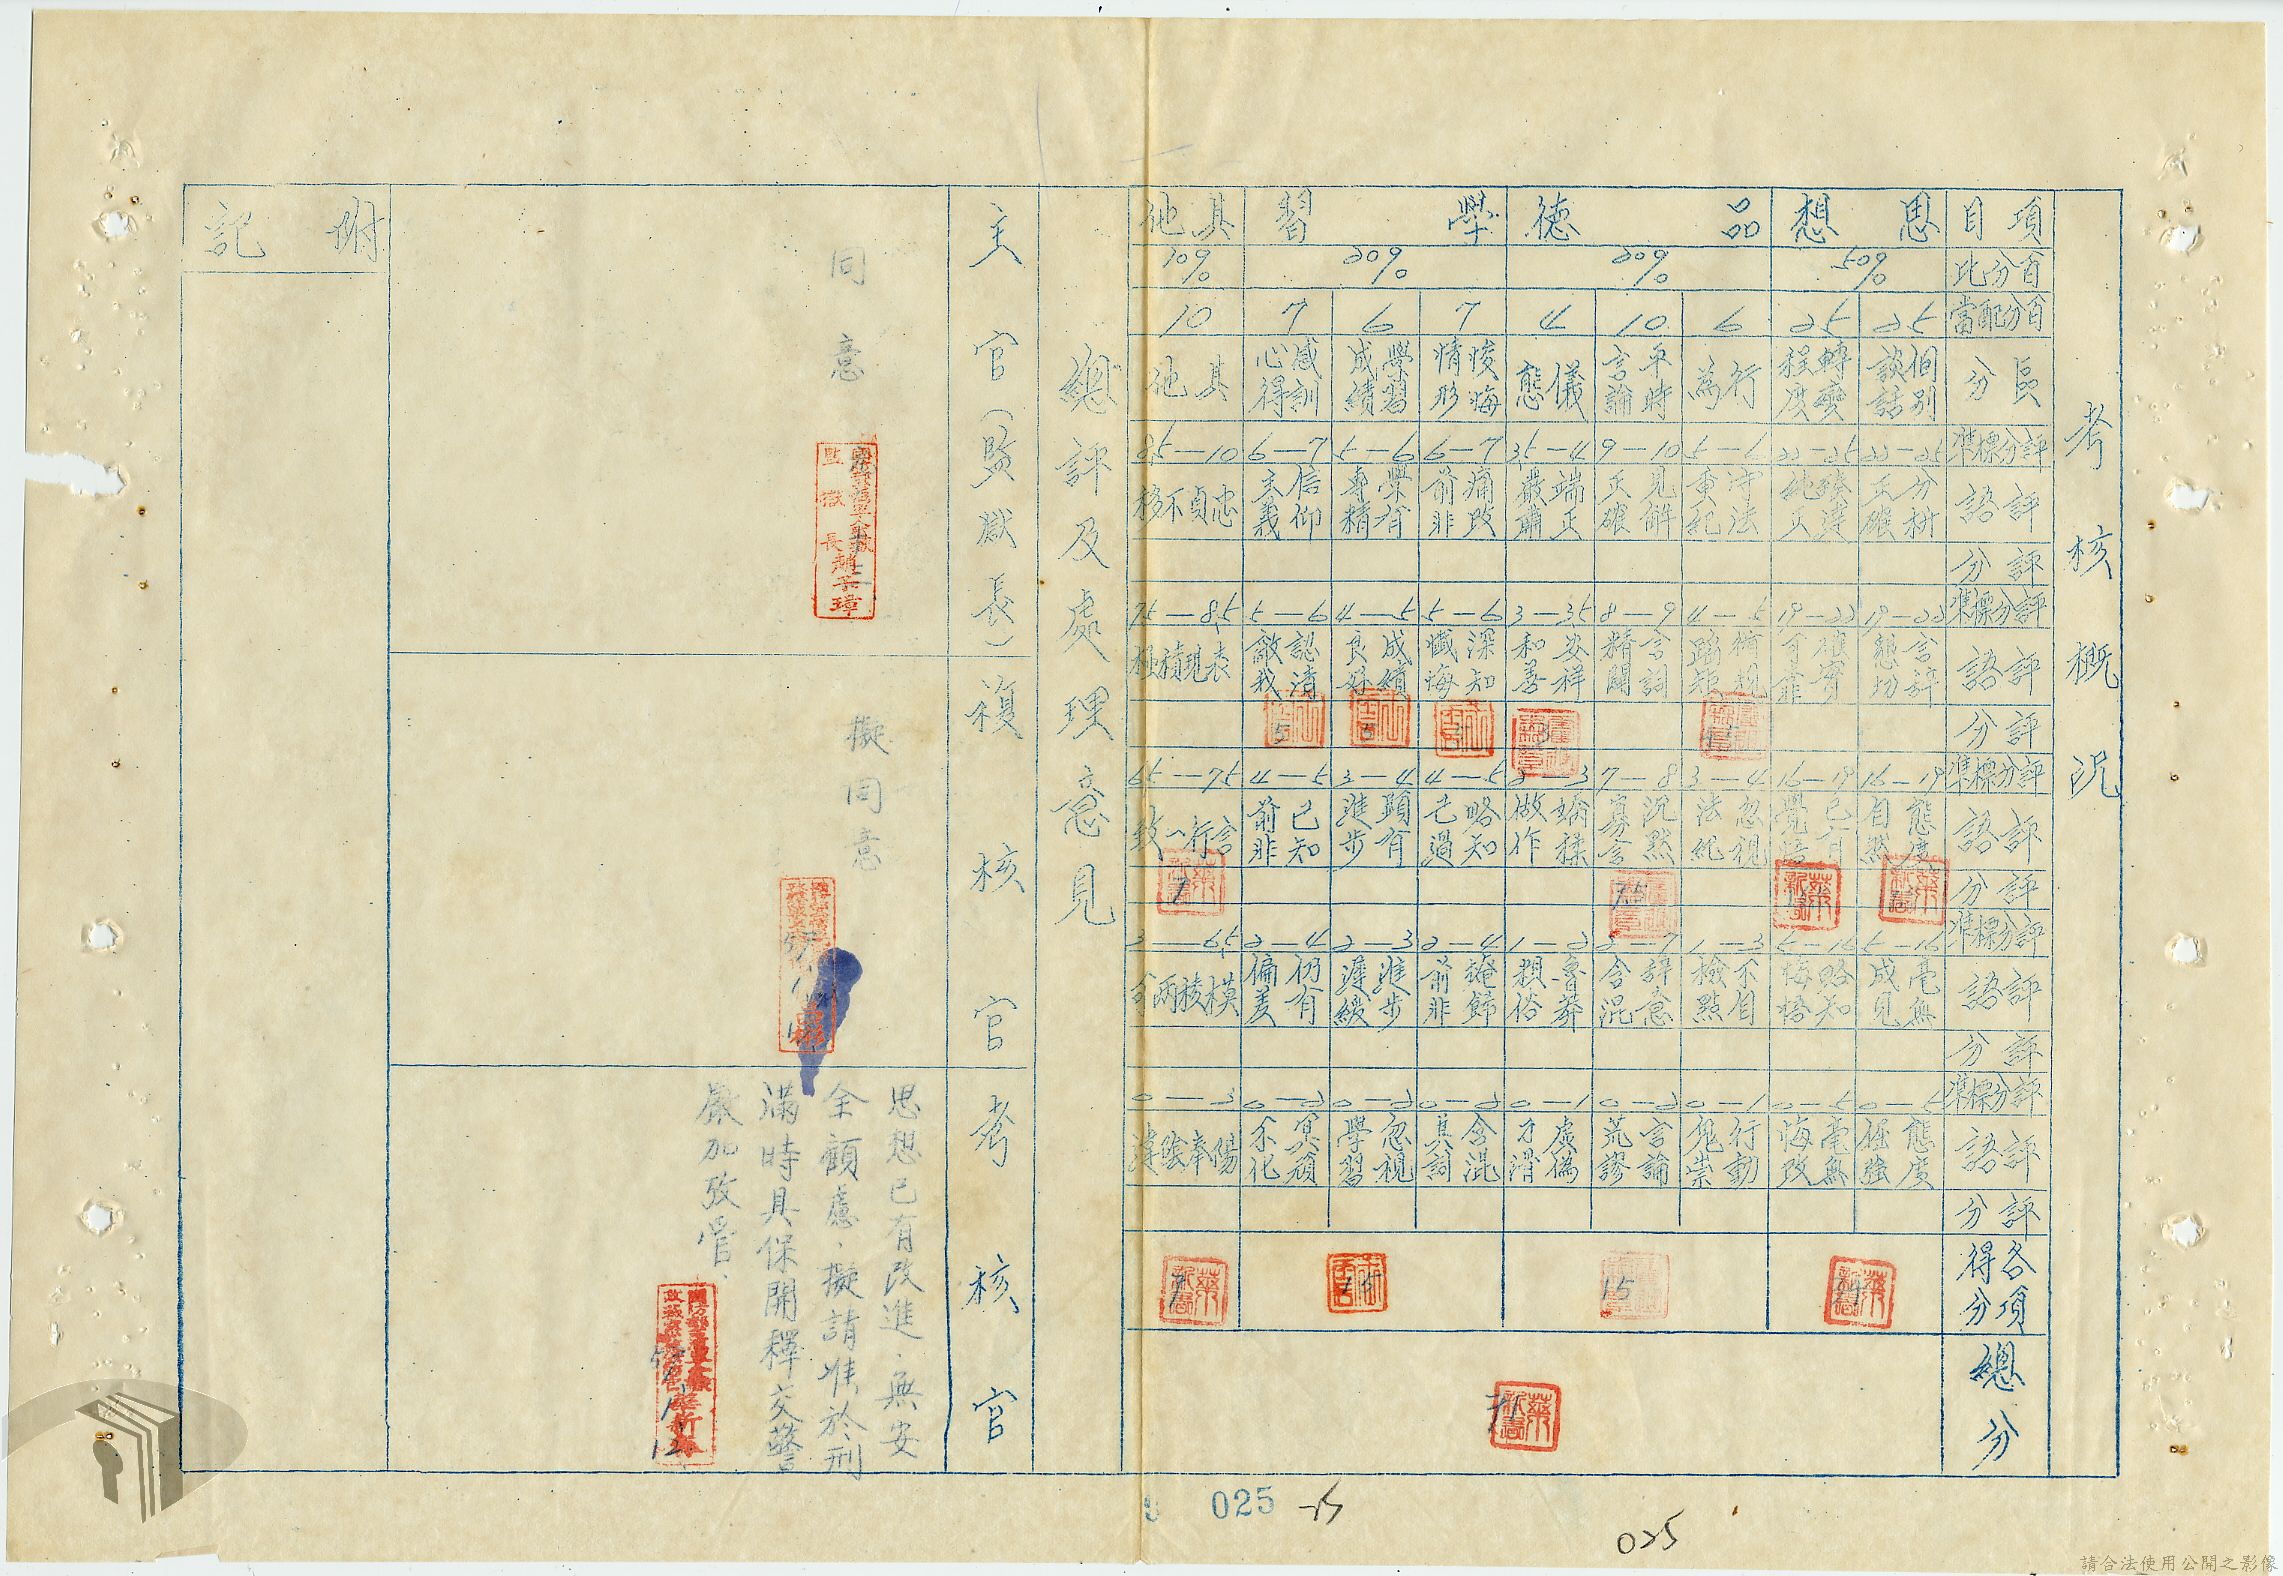 考核概況
項目 思想 品德 學習 其他
百分比 50% 20% 20% 10%
百分配當 25 25 6 10 4 7 6 7 10
區分 個別談話 轉變程度 行為 平時言論 儀態 悛悔情形 學習成績 感訓心得 其他
評分標準 22—25 22—25 5—6 9—10 3.5—4 6—7 5—6 6—7 8.5—10
評語 分析正確 發達純正 守法重紀 見解正確 端正嚴肅 痛改前非 學有專精 信仰主義 忠貞不移
評分
評分標準 19—22 19—22 4—5 8—9 3—3.5 5—6 4—5 5—6 7.5—8.5
評語 言辭懇切 確實可靠 循規蹈矩 言詞精闢 安祥和善 深知懺悔 成績良好 認清敵我 表現積極
評分 3 5 5 5
評分標準 16—19 16—19 3—4 7—8 2—3 4—5 3—4 4—5 6.5—7.5
評語 態度自然 已有覺悟 忽視法紀 沉默寡言 矯揉做作 略知己過 顯有進步 已知前非 言行一致
評分 7
評分標準 5—16 5—16 1—3 2—7 1—2 2—4 2—3 2—4 3—6.5
評語 毫無成見 略知悔悟 不自檢點 辭意含混 魯莽粗俗 掩飾前非 進步遲緩 仍有偏差 模稜兩可
評分
評分標準 0—5 0—5 0—1 0—2 0—1 0—2 0—2 0—2 0—3
評語 態度倔強 毫無悔改 行動鬼祟 言論荒謬 虛偽刁滑 含混其詞 忽視學習 冥頑不化 陽奉陰違
評分
各項得分 34 15 15 7
總分 71
總評及處理意見
主官（監獄長）
同意
監獄長
複核官
擬同意
考核官
思想已有改進，無安
全顧慮，擬請准於刑
滿時具保開釋交警
嚴加考管。
附記
025
025
請合法使用公開之影像